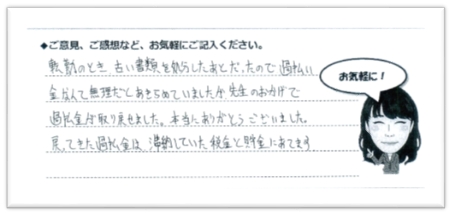 ◆ご意見、ご感想など、お気軽にご記入ください。
転勤のとき、古い書類を処分したあとだったので過払い
金なんて無理だとあきらめていましたが先生のおかげで
過払金が取り戻せました。本当にありがとうございました。
戻ってきた過払金は、滞納していた税金と貯金にあてます
お気軽に！